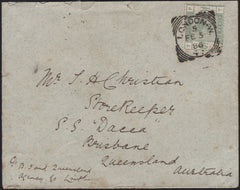 LONDON.W.
5
FE 5
86
Mr T. H Christian
Storekeeper
S.S. "Dacca"
Brisbane
Queensland
Australia
Queensland
Agency